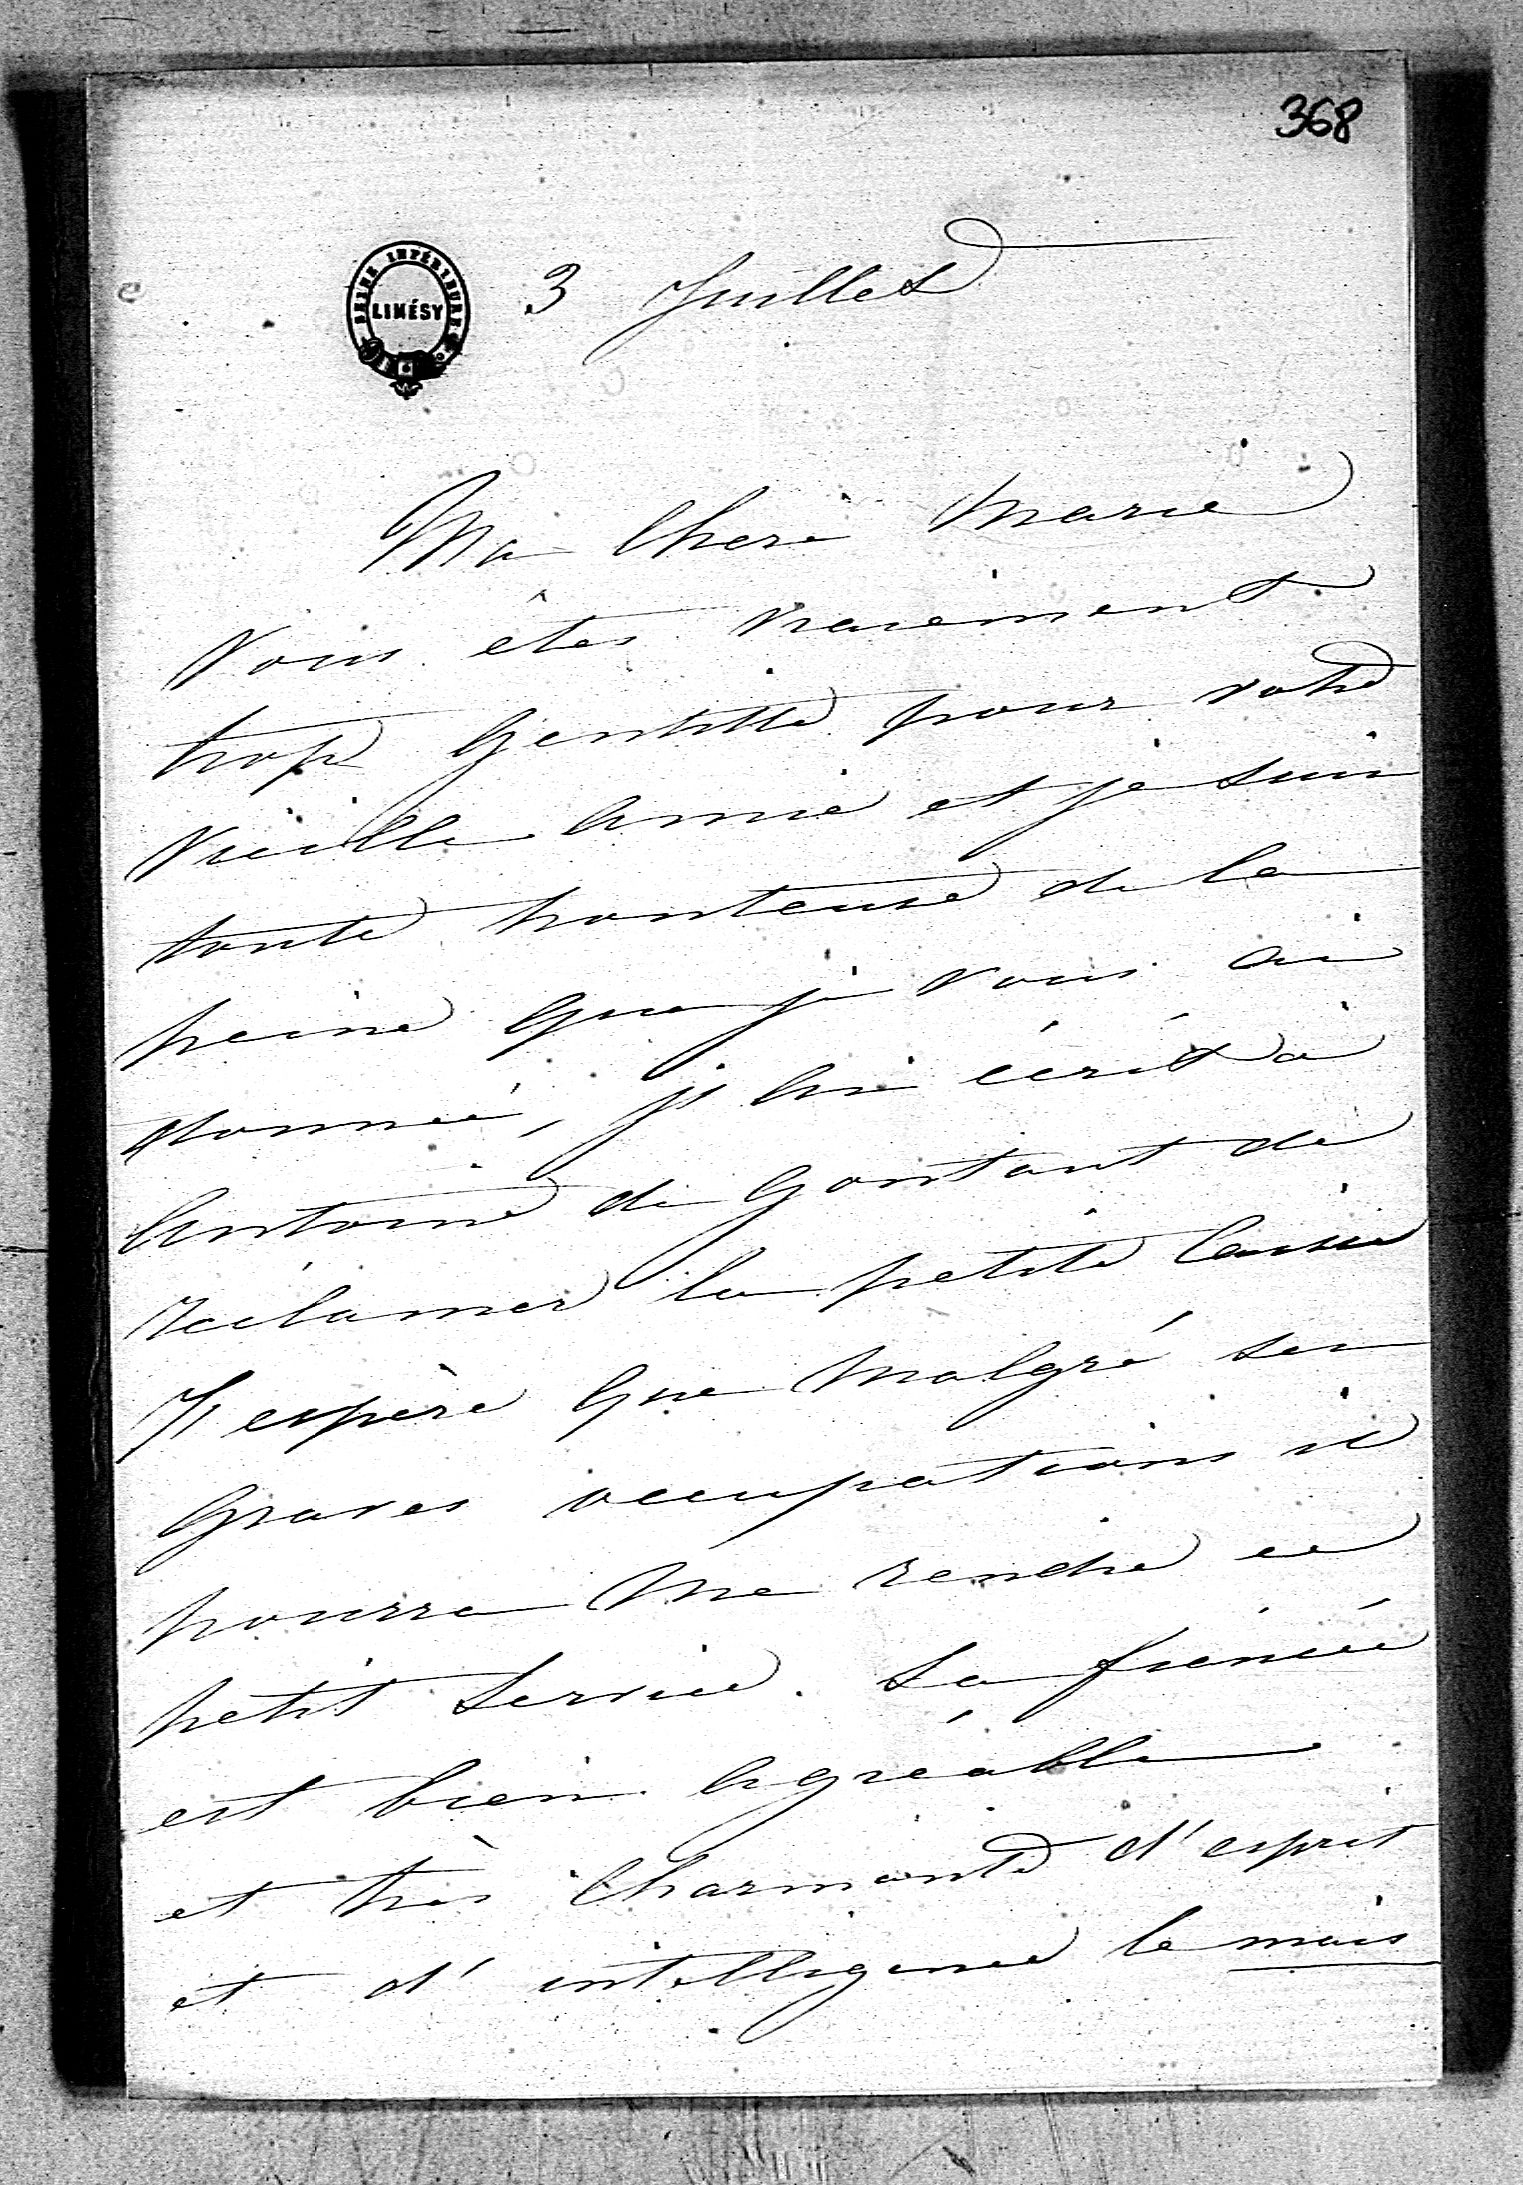 368
SEINE INFÉRIEURE
LIMÉSY
3 Juillet
Ma chere Marie
Vous êtes vraiment
trop gentille pour votre
vieille amie et je suis
toute honteuse de la
peine que je vous ai
donneé, j'ai écrit à
Antoine de Gontaut de
réclamer la petite caisse
J'espère que malgré ses
graves occupations il
pourra me rendre ce
petit service. Sa fiancée
est bien agréable
et très charmante d'esprit
et d'intelligence le mais